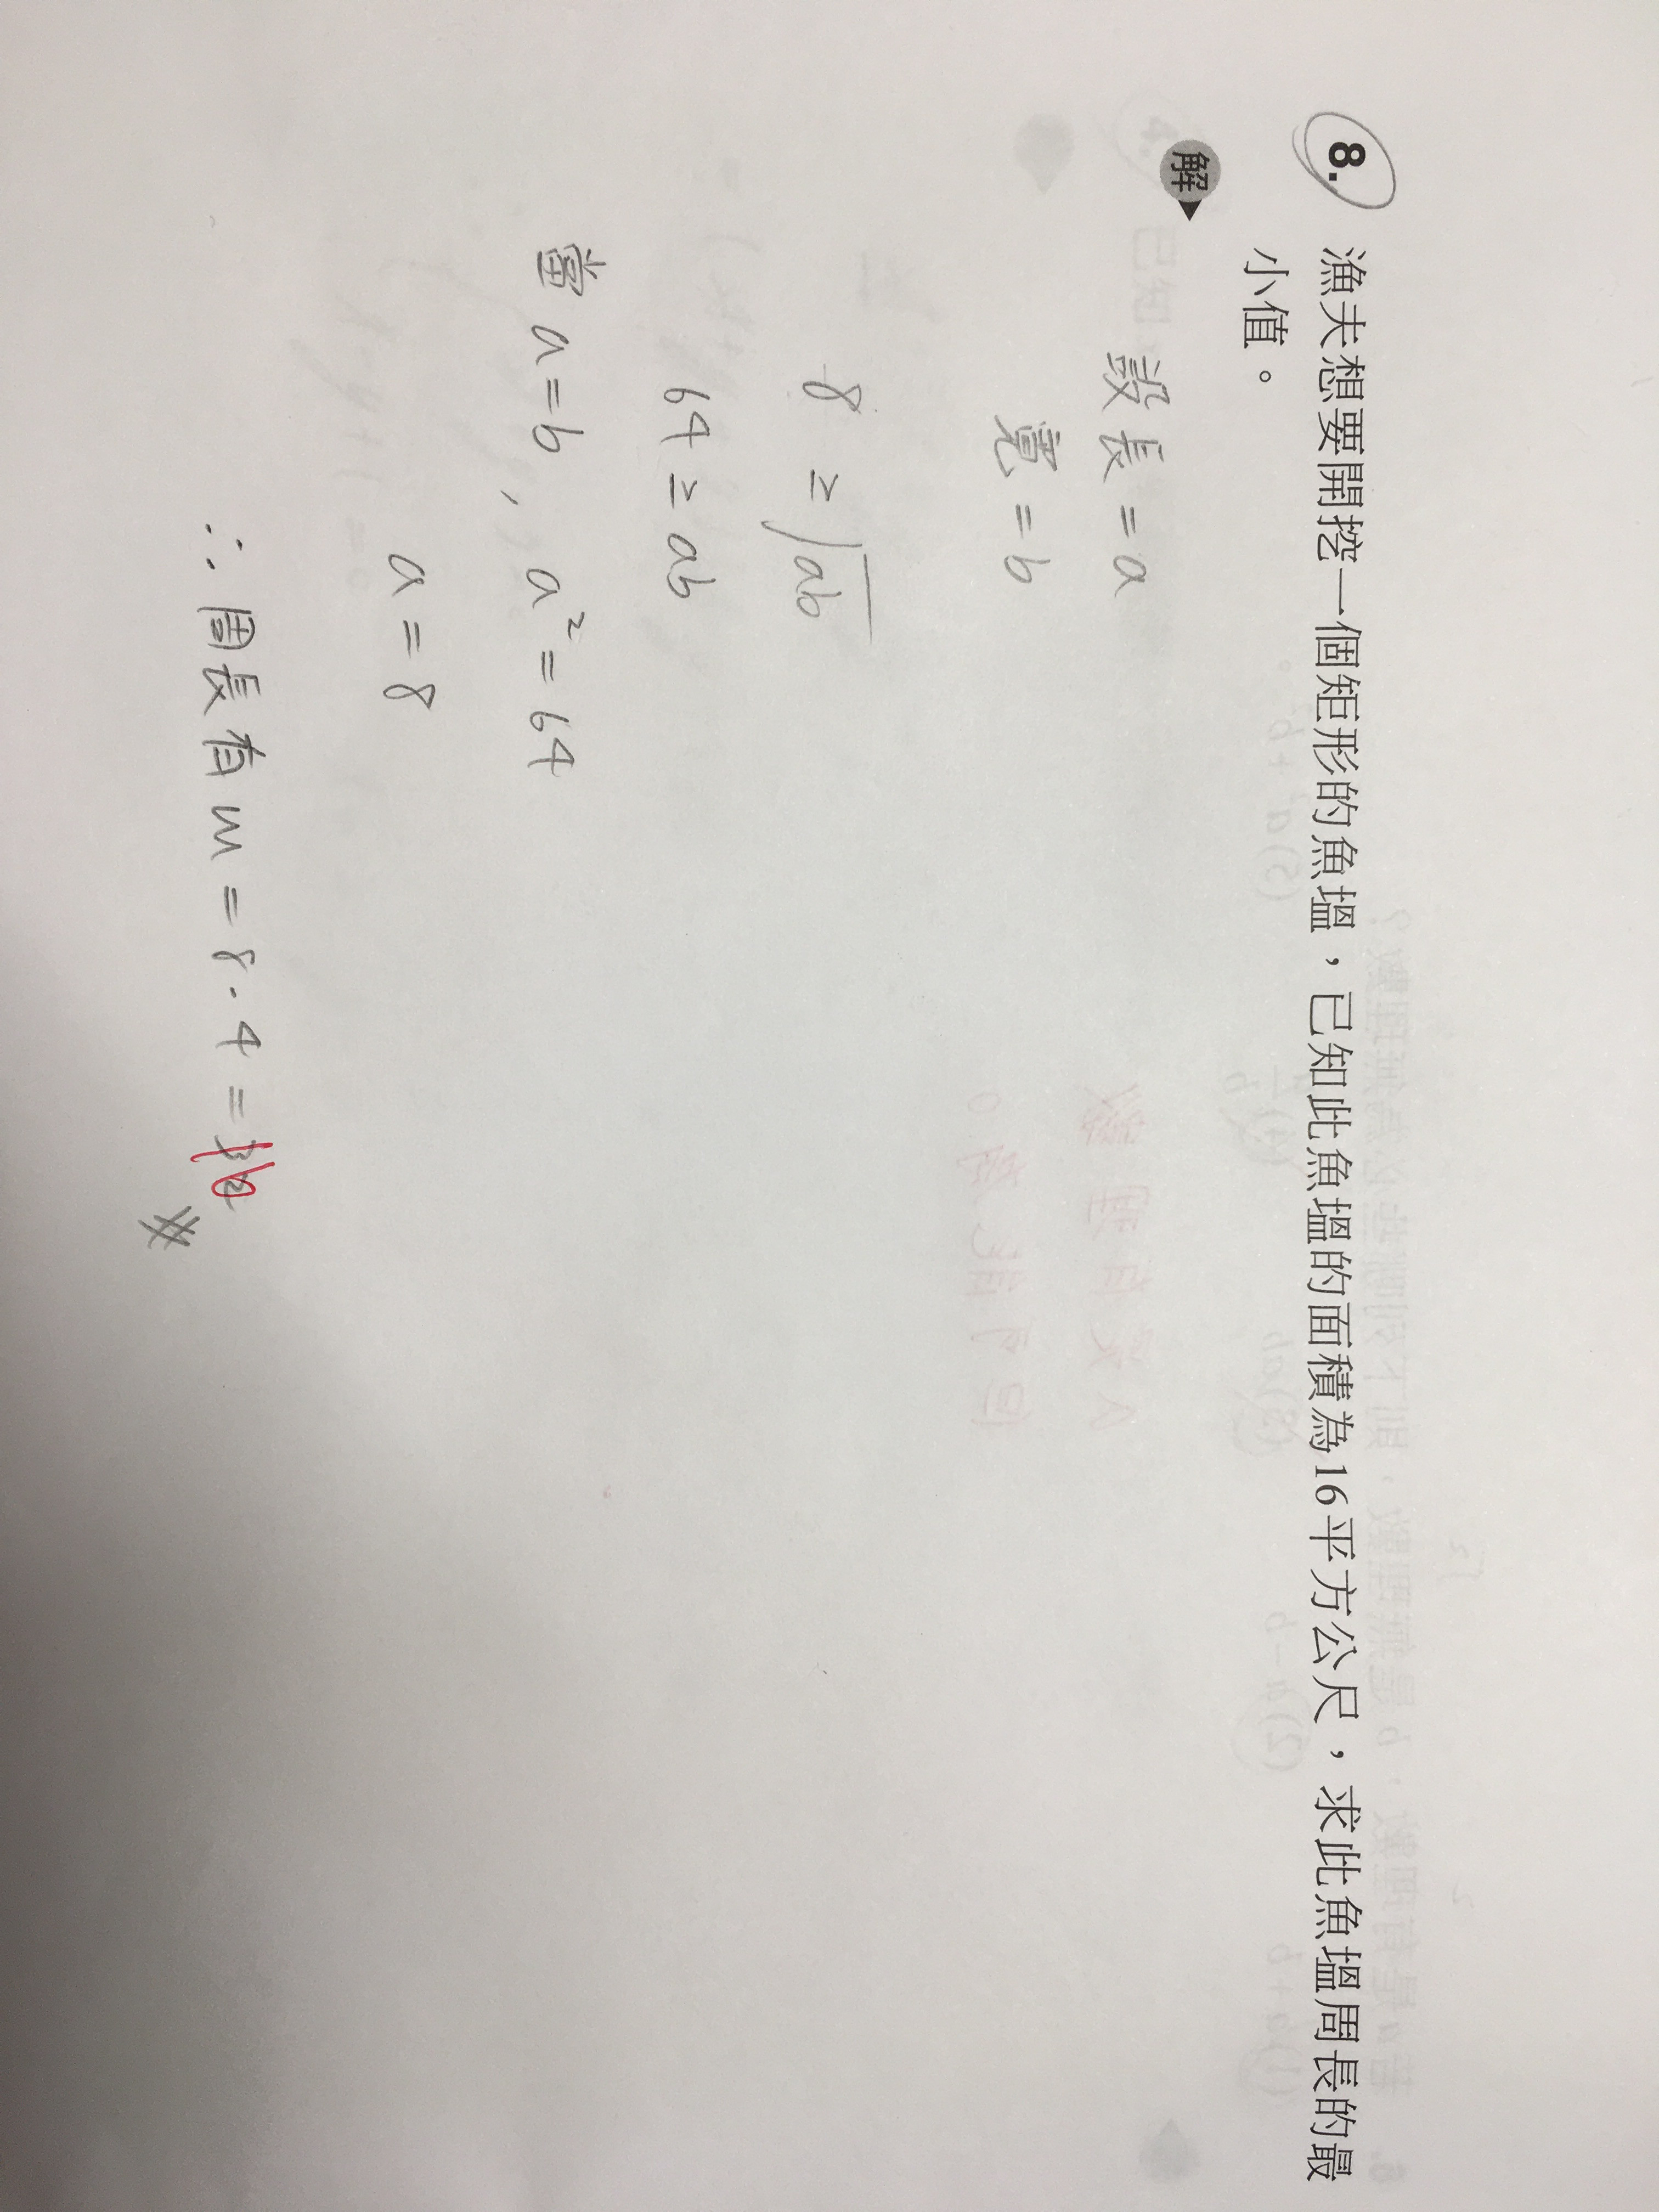 8. 漁夫想要開挖一個矩形的魚塭，已知此魚塭的面積為16平方公尺，求此魚塭周長的最
小值。
解
設長=a
寬=b
8 ≥ √ab
64 ≥ ab
當 a=b , a²=64
a=8
∴周長有m=8·4=32
16